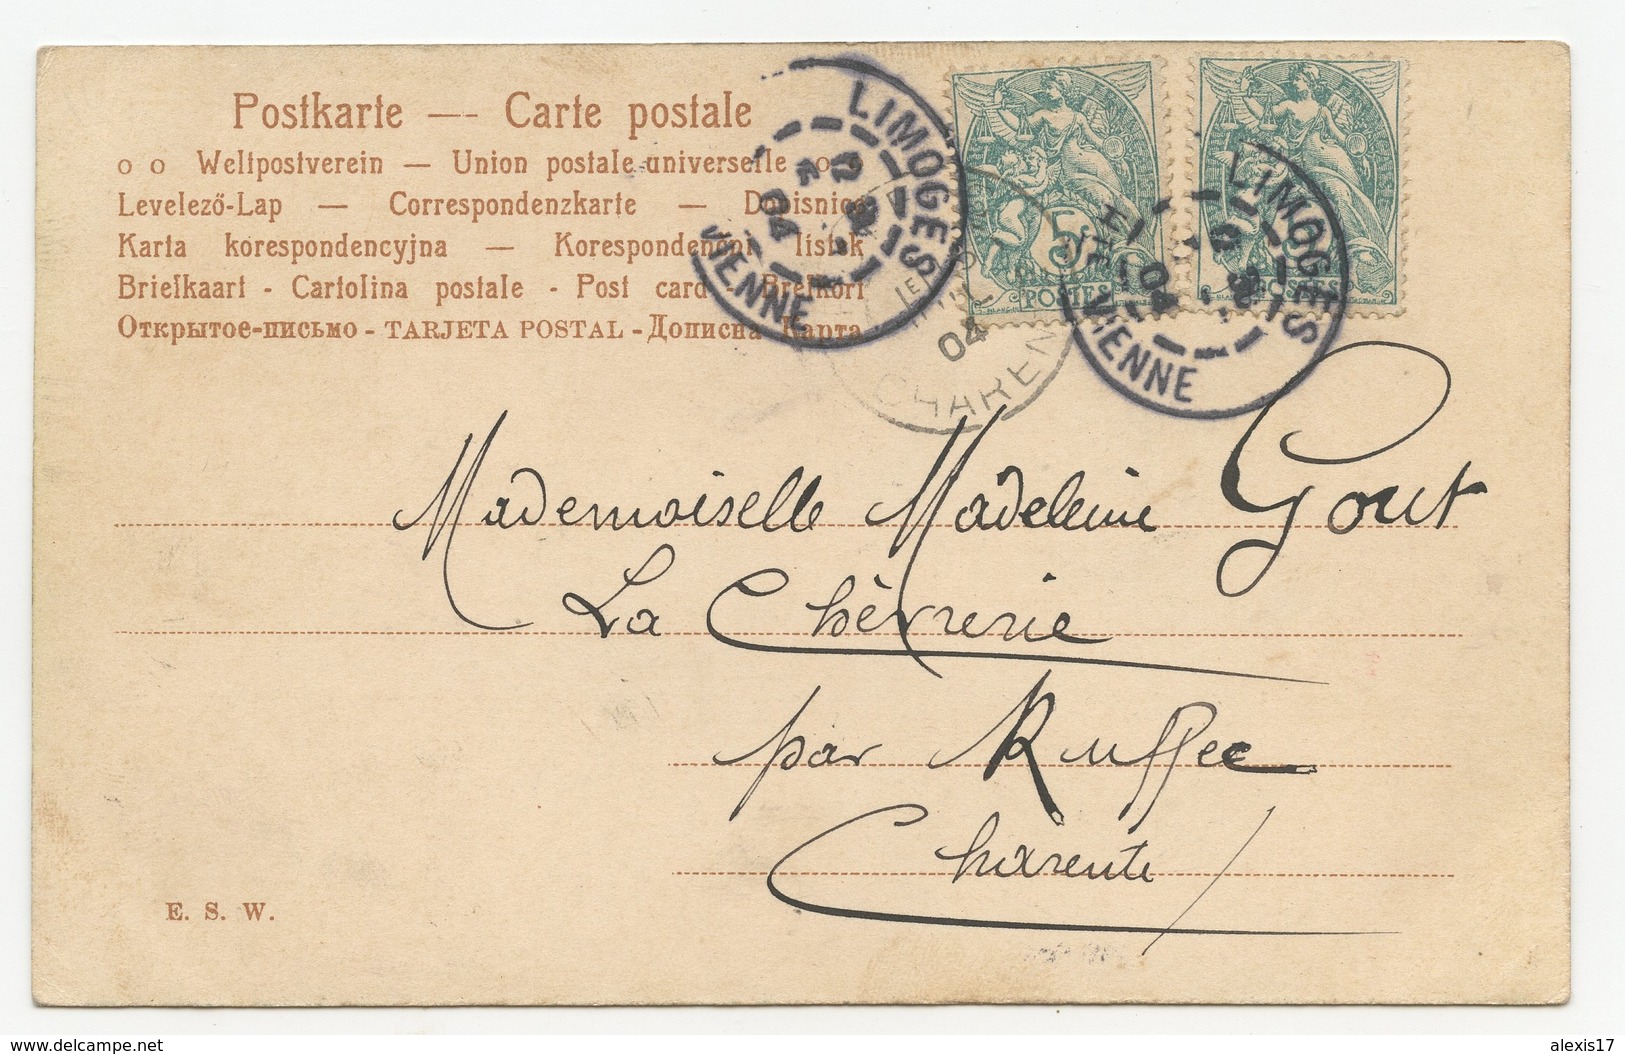 Postkarte — Carte postale
o o Weltpostverein — Union postale universelle o o
Levelező-Lap — Correspondenzkarte — Dopisnice
Karta korespondencyjna — Korespondenční lístek
Briefkaart - Cartolina postale - Post card - Brefkort
Открытое-письмо - TARJETA POSTAL - Дописна Карта
LIMOGES
VIENNE
04
LIMOGES
VIENNE
04
04
CHAREN
5
POSTES
POSTES
Mademoiselle Madeleine Gout
La Chèvrerie
par Ruffec
Charente
E. S. W.
www.delcampe.net
alexis17